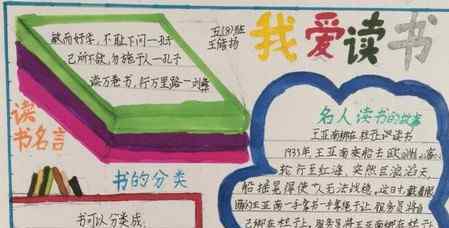 敏而好学，不耻下问—孔子
己所不欲，勿施于人—孔子
读万卷书，行万里路—刘彝
五(8)班
王储扬
我爱读书
读
书名言
书的分类
书可以分类成：
名人读书的故事
王亚南绑在柱子上读书
1933年，王亚南乘船去欧洲。客
轮行至红海，突然巨浪滔天，
船摇晃得使人无法站稳。这时，戴着眼
镜的王亚南一手拿书一手
让服务员将自
己绑在柱子上。服务员将王亚南绑在柱子上